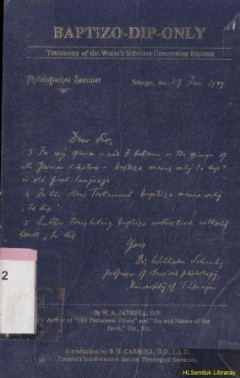 BAPTIZO-DIP-ONLY
Testimony of the World's Scholars Concerning Baptism
Philologisches Seminar
Tübingen, 17 Jan 19
Dear Sir,
3 In my opinion and I believe in the opinion of
all German scholars baptizo means only "to dip"
in old Greek language
4 In the New Testament baptizo means only
"to dip"
5 Luther translating baptizo
"to dip"
Yours
Dr. Wilhelm Schmid,
professor of classical philology,
University of Tübingen
2
By W. A. JARREL, D.D.
Author of "Old Testament Ethics" and
Etc., Etc.
Introduction by B. H. CARROLL, D.D., L.L.D.
President Southwestern Baptist Theological Seminary
HLSenduk Library